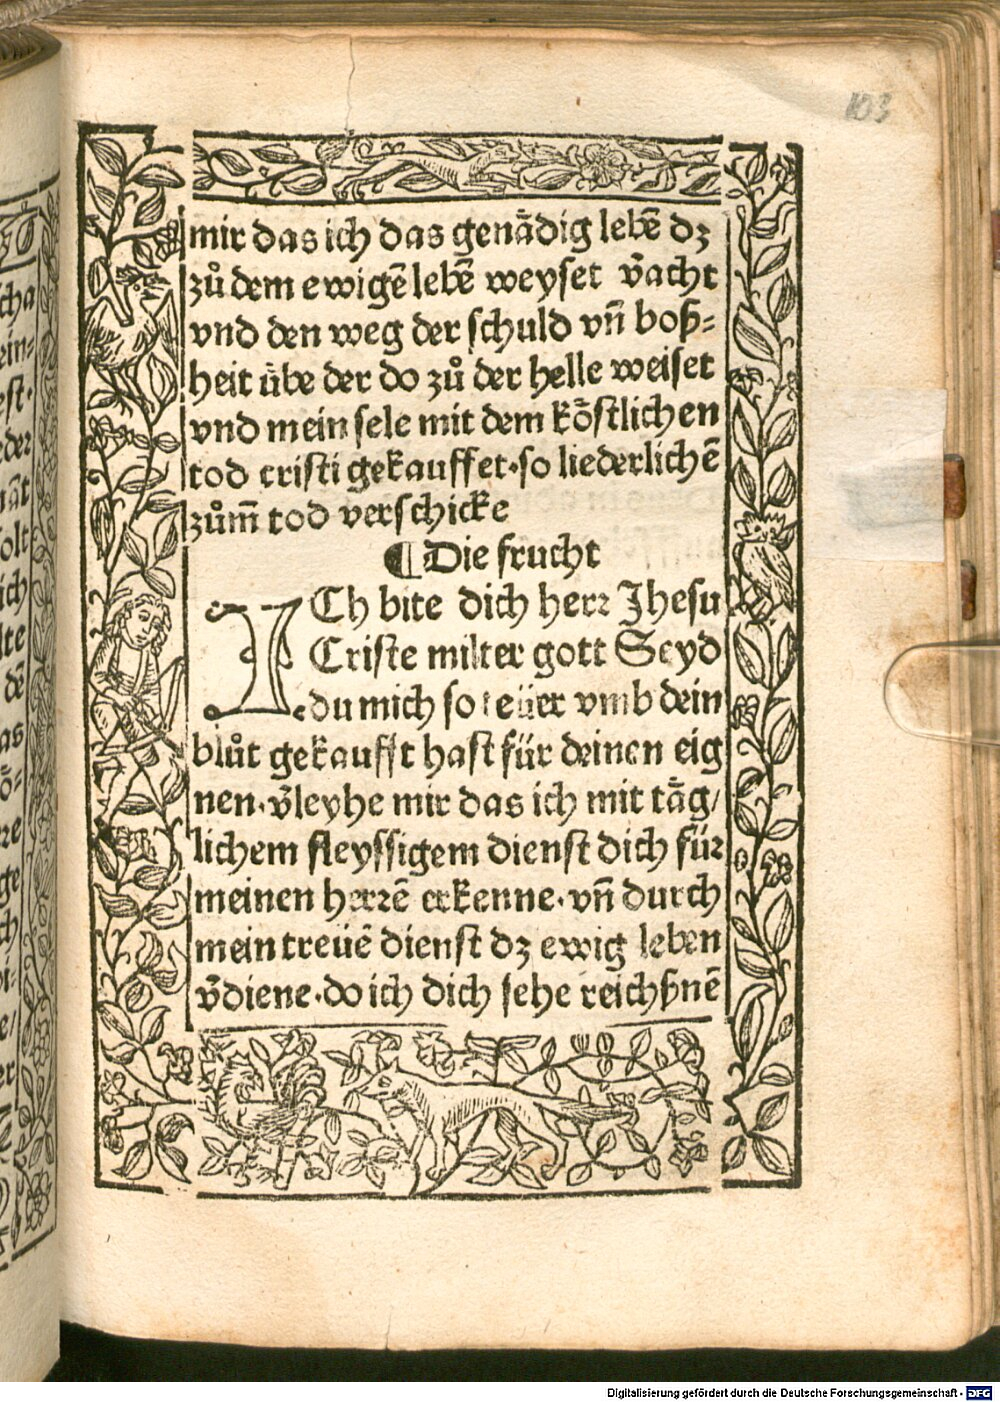 103
mir das ich das genädig lebē dz
zů dem ewigē lebē weyset v̄acht
vnd den weg der schuld vn̄ boß⸗
heit übe der do zů der helle weiset
vnd mein sele mit dem köstlichen
tod cristi gekauffet·so liederlichē
zům̄ tod verschicke
¶ Die frucht
ICh bite dich herꝛ Jhesu
Criste milter gott Seyd
du mich so teüer vmb dein
blůt gekaufft hast für deinen eig
nen·v̄leyhe mir das ich mit täg/
lichem fleyssigem dienst dich füꝛ
meinen herꝛē erkenne·vn̄ durch
mein treüē dienst dz ewig leben
v̄diene·do ich dich sehe reichßnē
Digitalisierung gefördert durch die Deutsche Forschungsgemeinschaft - DFG